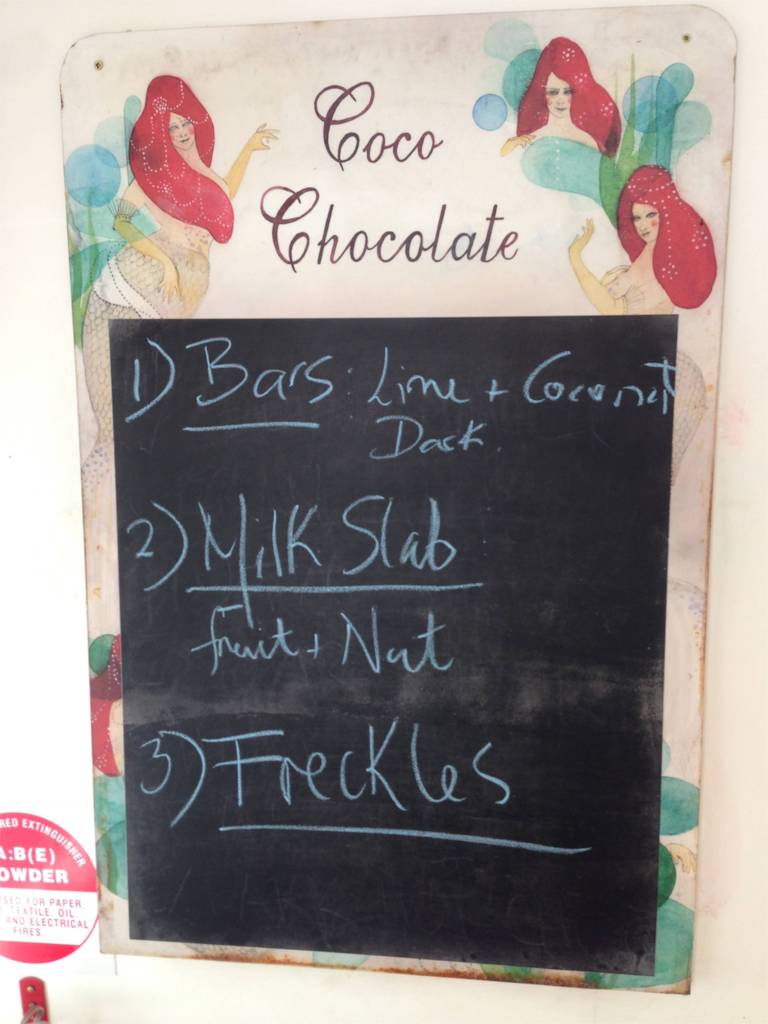 Coco
Chocolate
1) Bars: Lime + Coconut
Dark.
2) Milk Slab
fruit + Nut
3) Freckles
RED EXTINGUISHER
A:B(E)
OWDER
SED FOR PAPER,
TEXTILE, OIL,
AND ELECTRICAL
FIRES